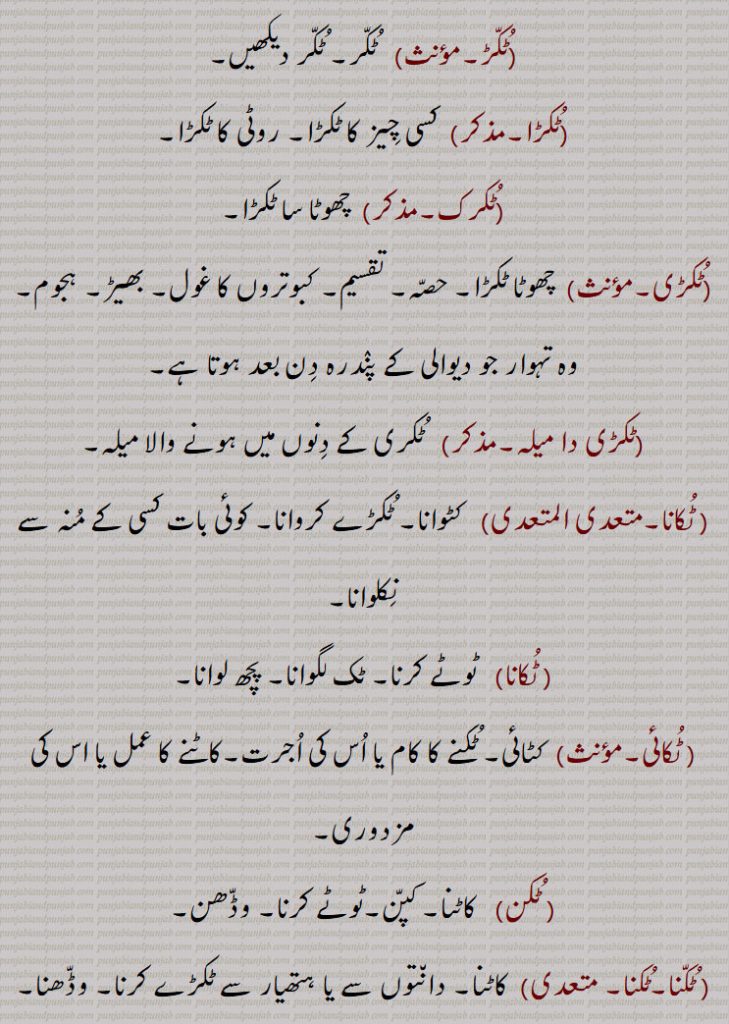 (ٹُکّڑ۔مؤنث) ٹُکّر۔ٹُکّر دیکھیں۔
(ٹُکڑا۔مذکر) کسی چِیز کا ٹکڑا۔ روٹی کا ٹکڑا۔
(ٹُکرک۔مذکر) چھوٹا سا ٹکڑا۔
(ٹُکڑی۔مؤنث) چھوٹا ٹکڑا۔ حصّہ۔ تقسیم۔ کبوتروں کا غول۔ بھیڑ۔ ہجوم۔
وہ تہوار جو دیوالی کے پندرہ دِن بعد ہوتا ہے۔
(ٹکڑی دا میلہ۔مذکر) ٹُکری کے دِنوں میں ہونے والا میلہ۔
(ٹُکانا۔متعدی المتعدی) کٹوانا۔ٹُکڑے کروانا۔ کوئی بات کسی کے مُنہ سے
نِکلوانا۔
(ٹُکانا) ٹوٹے کرنا۔ ٹک لگوانا۔ پچھ لوانا۔
(ٹُکائی۔مؤنث) کٹائی۔ٹُکنے کا کام یا اُس کی اُجرت۔کاٹنے کا عمل یا اس کی
مزدوری۔
(ٹُکن) کاٹنا۔ کپّن۔ٹوٹے کرنا۔ وڈّھن۔
(ٹُکّنا۔ٹُکنا۔ متعدی) کاٹنا۔ دانتوں سے یا ہتھیار سے ٹکڑے کرنا۔ وڈّھنا۔